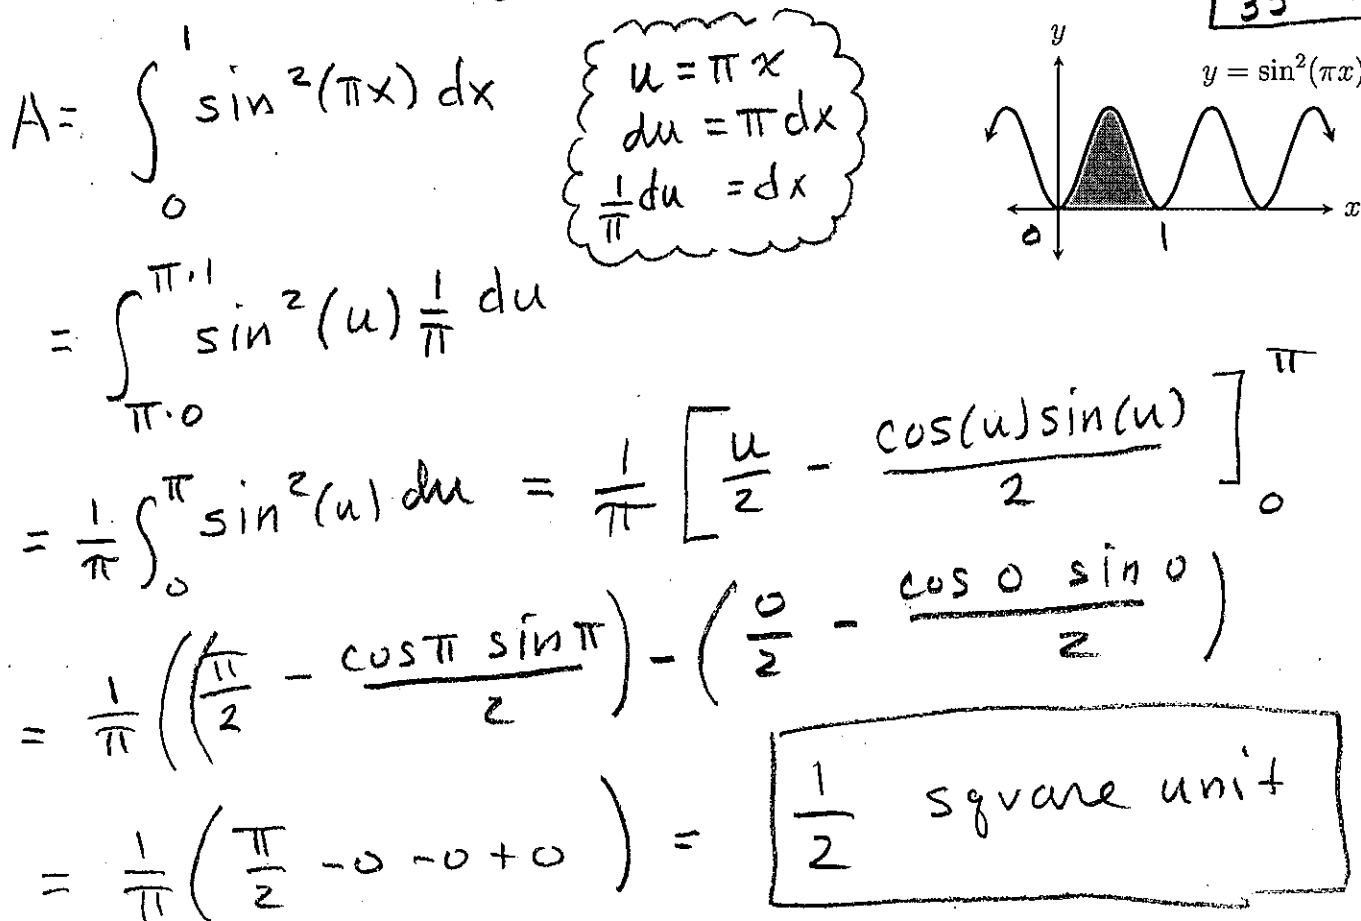 35
A = ∫₀¹ sin²(πx) dx
u = πx
du = π dx
1/π du = dx
y
y = sin²(πx)
x
0 1
= ∫_{π·0}^{π·1} sin²(u) 1/π du
= 1/π ∫₀^π sin²(u) du = 1/π [ u/2 - cos(u)sin(u)/2 ]₀^π
= 1/π ((π/2 - cos π sin π/2) - (0/2 - cos 0 sin 0/2)
= 1/π (π/2 - 0 - 0 + 0) = 1/2 square unit